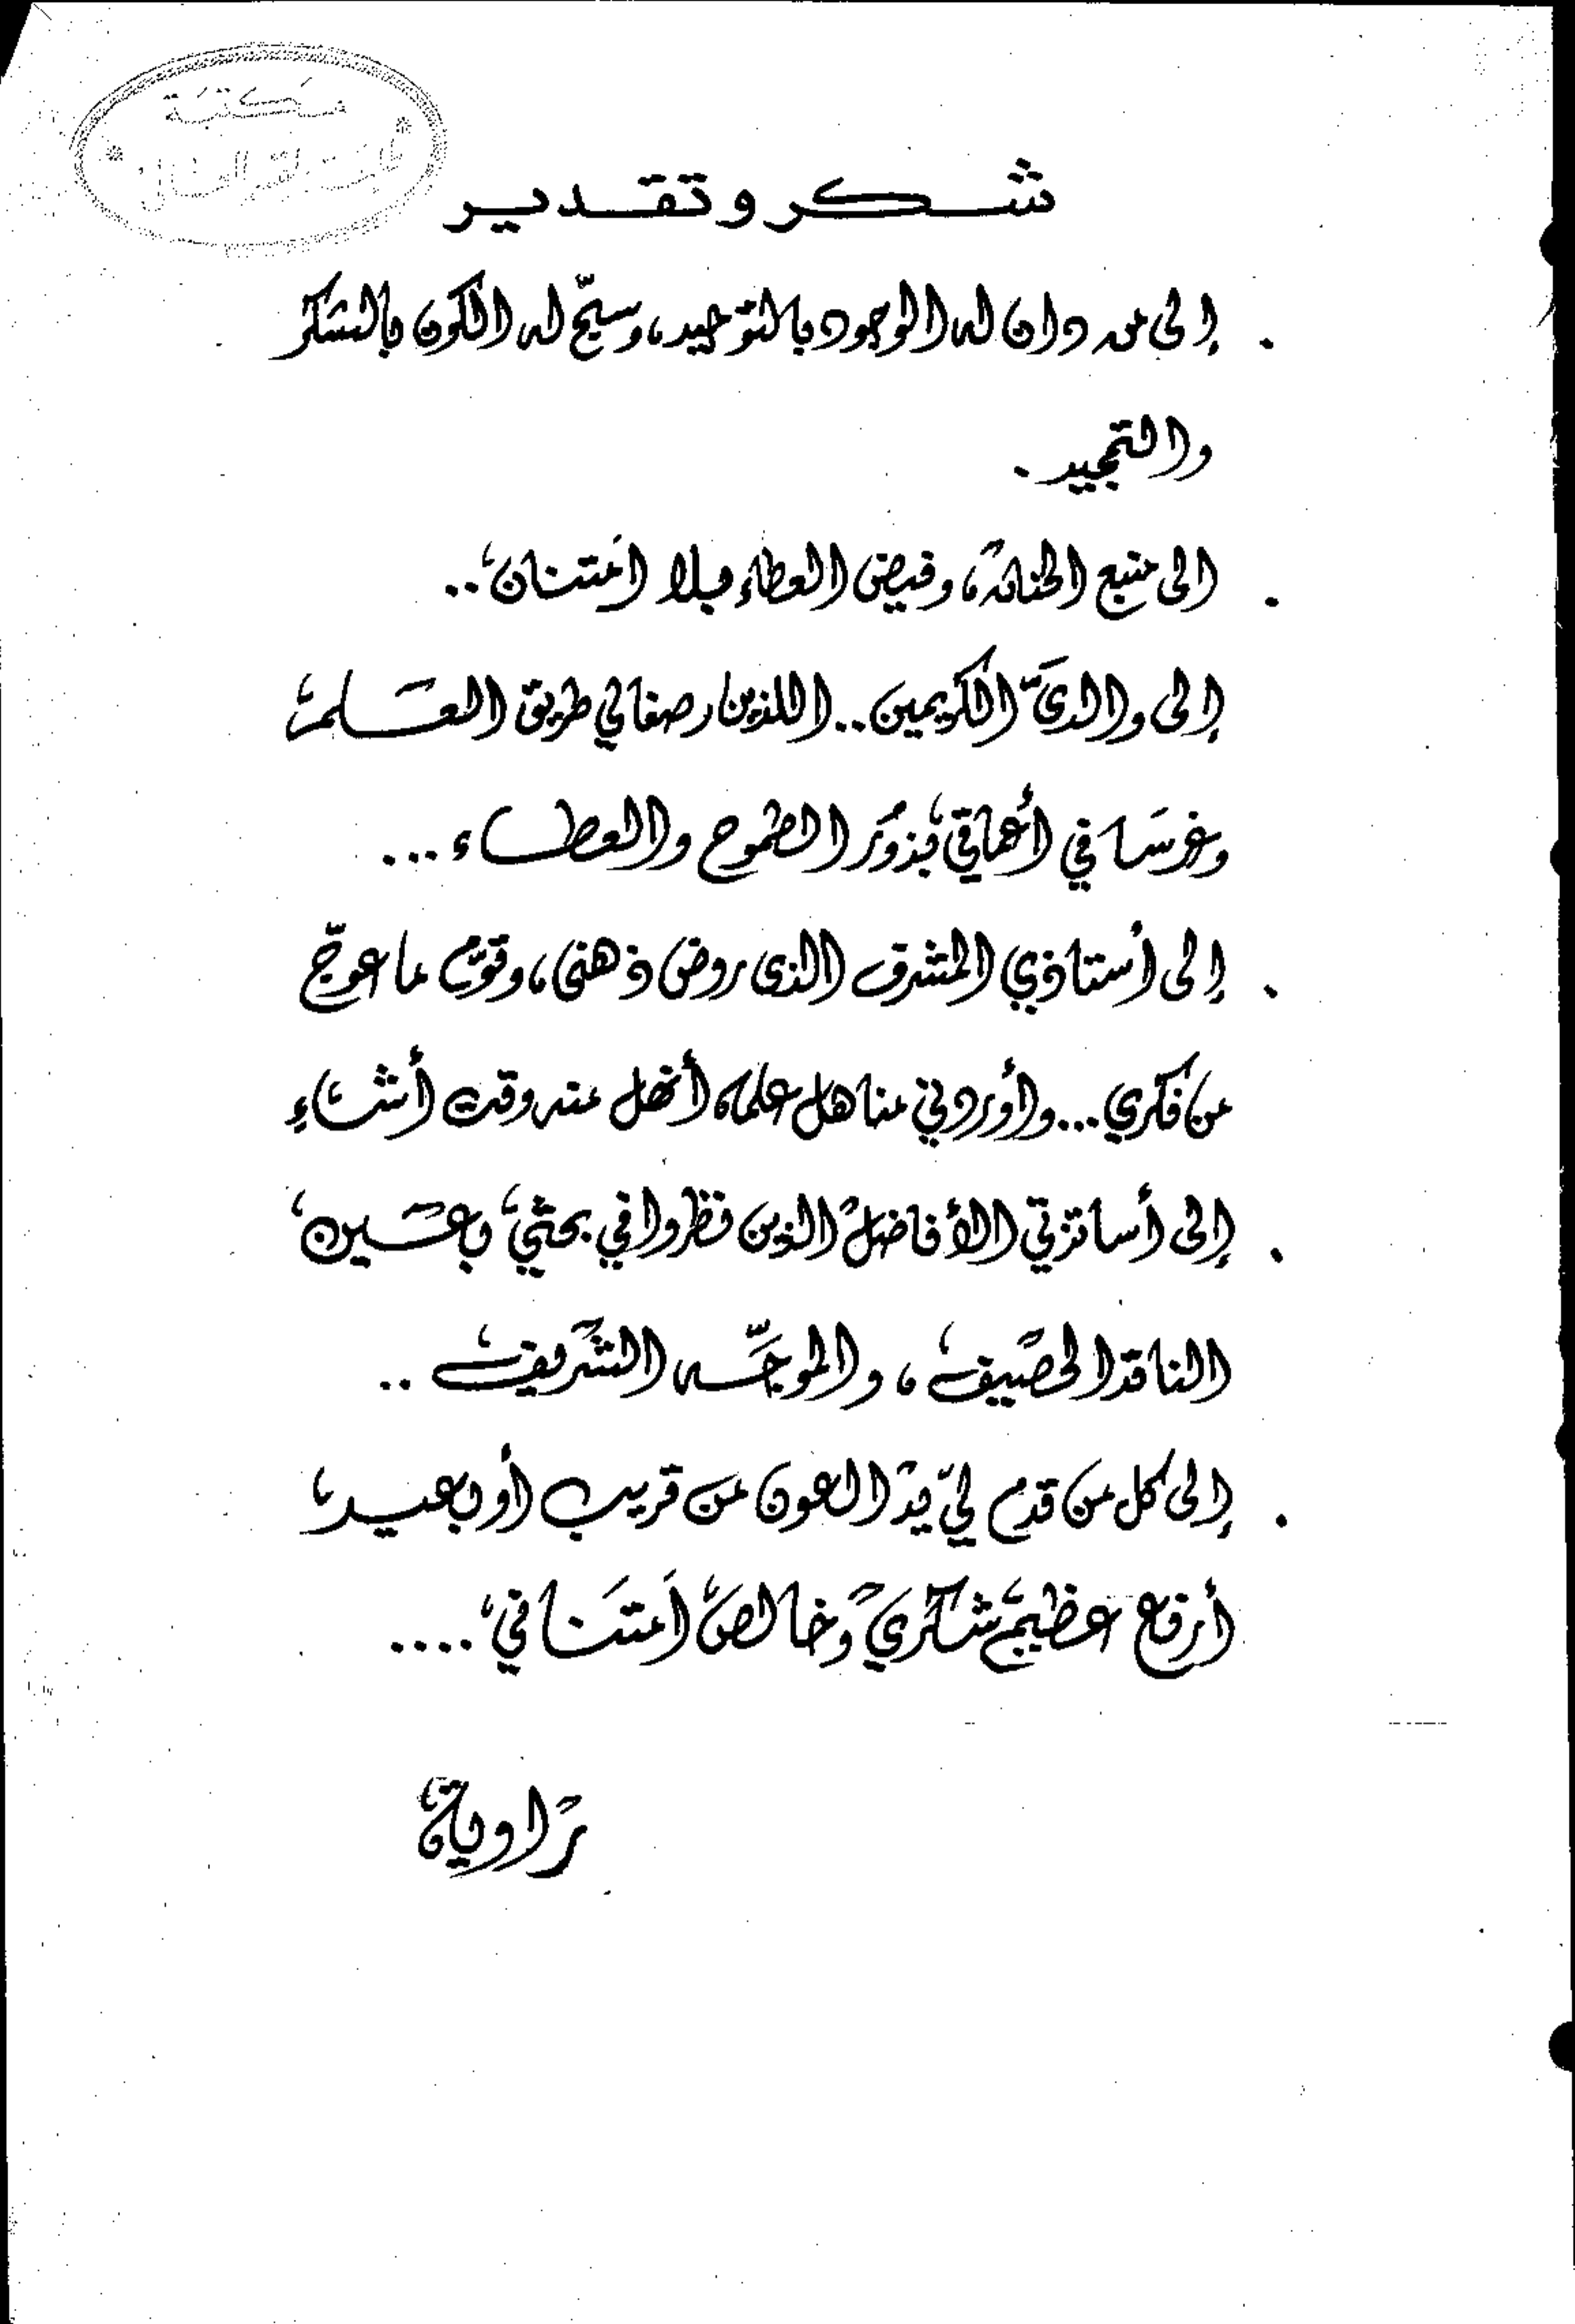 مكتبة
شكر وتقدير
. إلى من دان له الوجود بالتوحيد، وسبّح له الكون بالشكر
والتمجيد .
. الى منبع الحنان، وفيض العطاء بلا امتنان ..
إلى والديَّ الكريمين .. اللذين رصفا لي طريق العلم
وغرسا في أعماقي بذور الطموح والعطاء ...
. إلى أستاذي المشرف الذى روض ذهنى، وقوّم ما عوجّ
من فكري ... وأوردني مناهل علمه أنهل منه وقت أشاء
. إلى أساتذتي الأفاضل الذين نظروا في بحثي بعين
الناقد الحصيف، والموجّه الشريف ..
. إلى كل من قدم ليّ يد العون من قريب أو بعيد
أرفع عظيم شكري وخالص امتناني ....
راوية